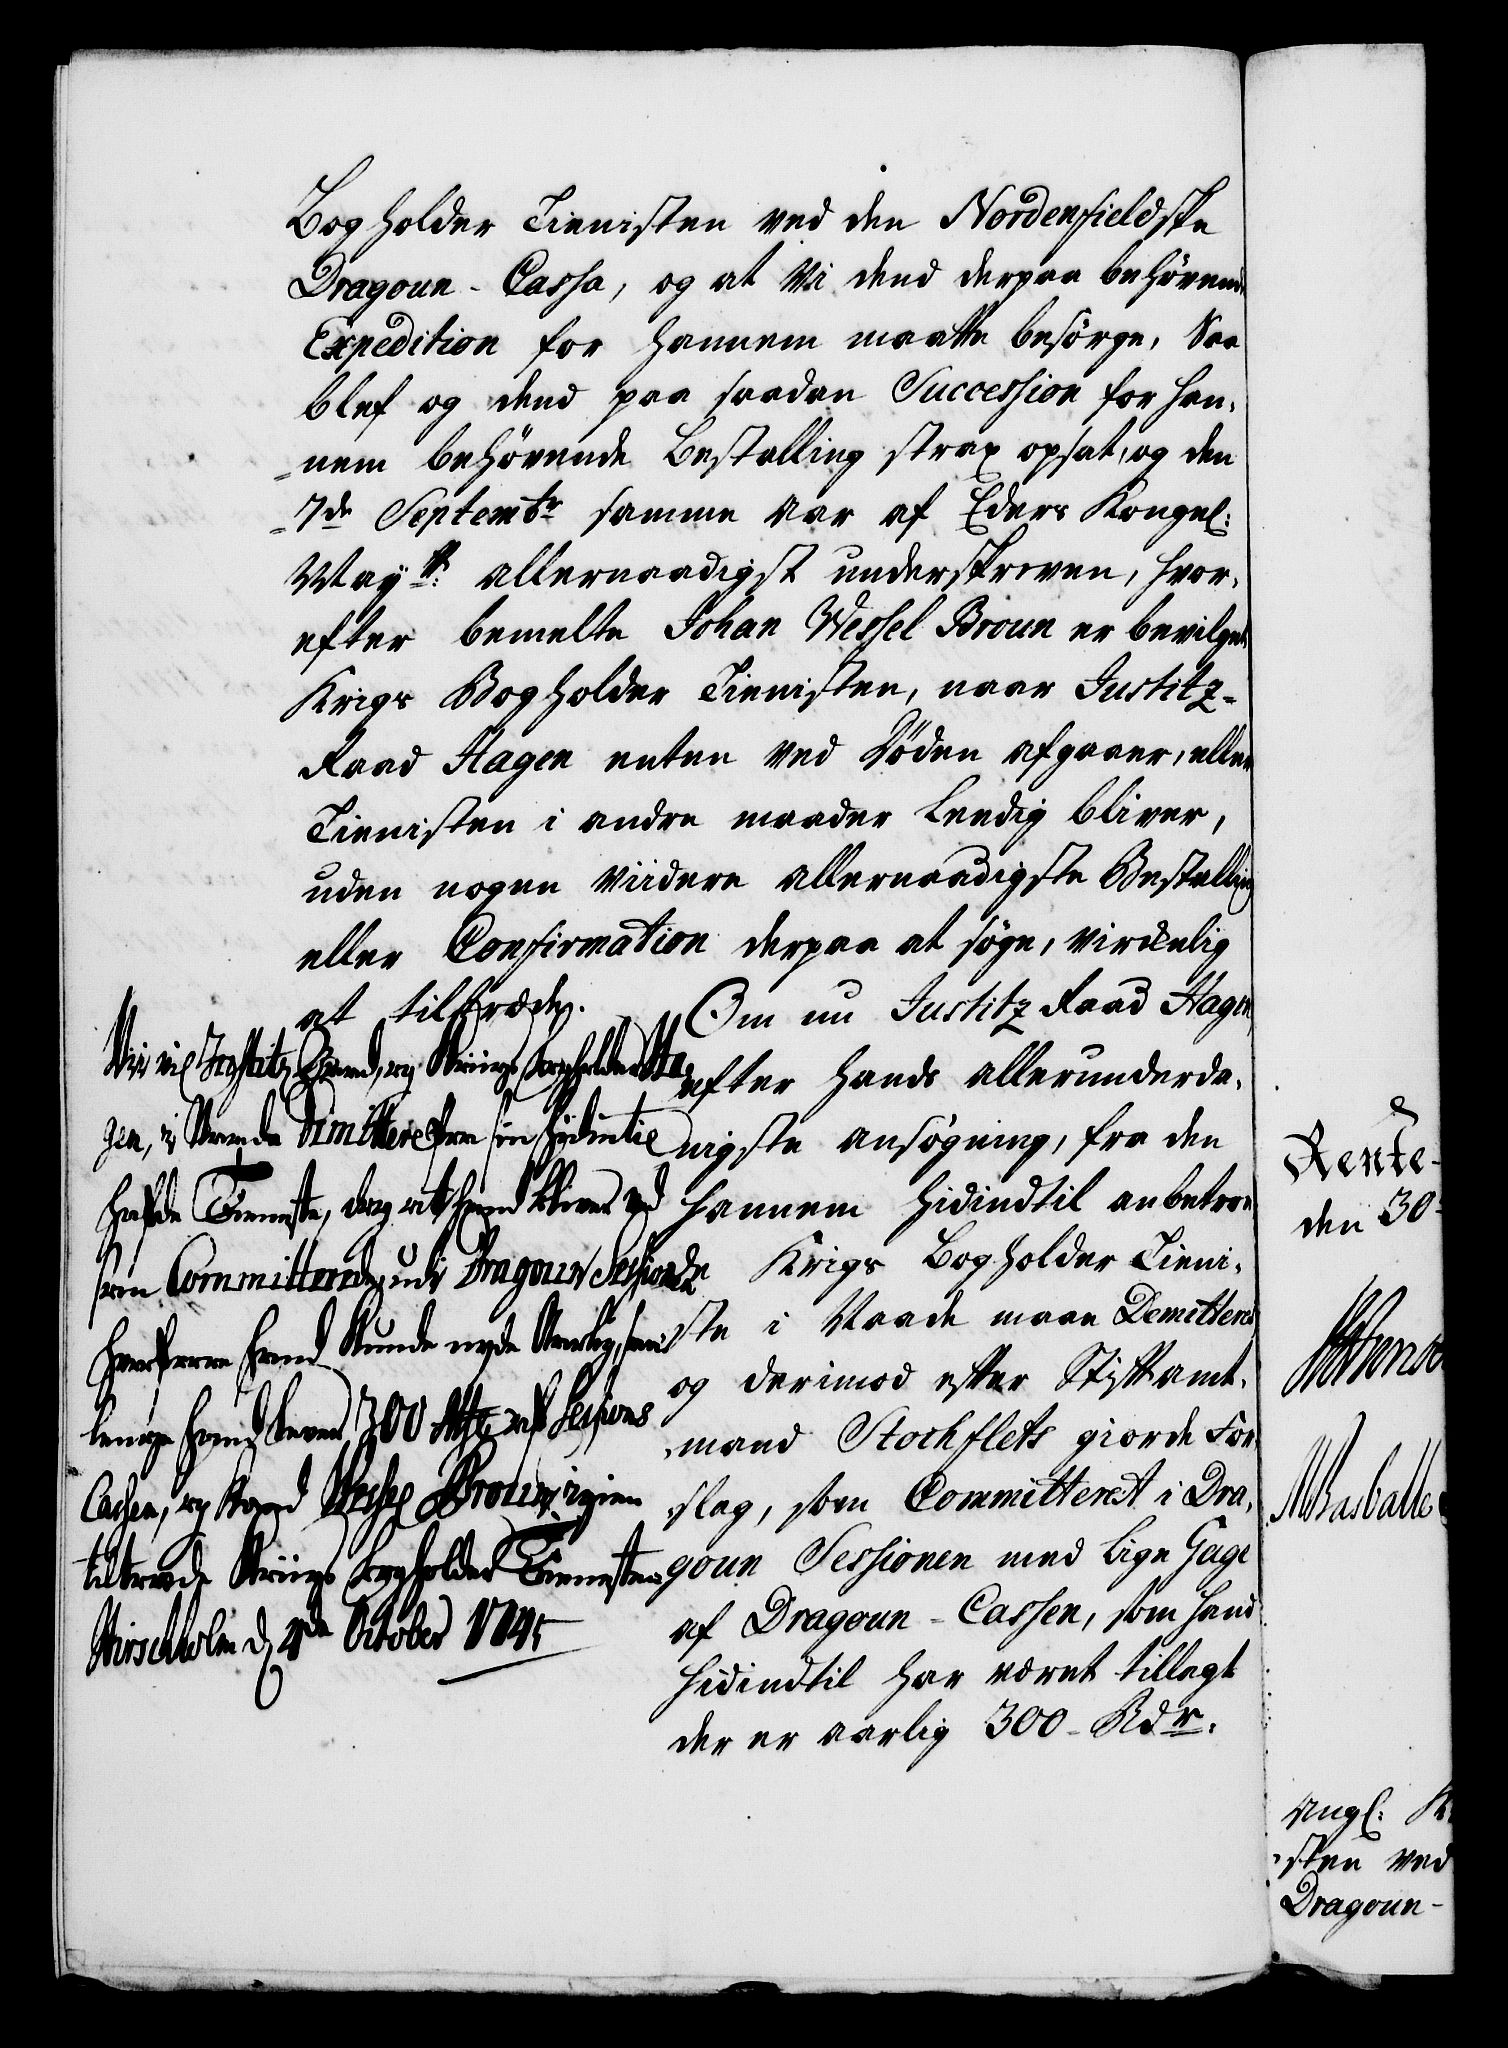 Bogholder Tienisten ved den Nordenfieldske
Dragoun-Cassa, og at Vi dend derpaa behörende
Expedition for hannem maatte besörge, Saa
blef og dend paa saadan Succession for han-
nem behörende Bestalling strax opsat, og den
7de Septembr samme aar af Eders Kongel:
May.tt allernaadigst underskreven, hvor-
efter bemelte Johan Wessel Broun er bevilget
Krigs Bogholder Tienisten, naar Justitz-
Raad Hagen enten ved Döden afgaaer, eller
Tienisten i andre maader Leedig bliver,
uden nogen viidere allernaadigste Bestalling
eller Confirmation derpaa at söge, virckelig
at tiltræde.
Om nu Justitz Raad Hagen,
efter hands allerunderda-
nigste ansögning, fra den
hannem hidindtil anbetroe-
de Krigs Bogholder Tieni-
ste i Naade maae Demitteres
og derimod efter Stiftamt-
mand Stockflets giorde For-
slag, som Committeret i Dra-
goun Sessionen med Lige Gage
af Dragoun-Cassen, som hand
hidindtil har været tillagt
der er aarlig 300 Rdr.
Vii vil Justitz Raad, og Kriigs bogholder Ha-
gen, i Naade Dimittere fra sin hidintil
hafde Tieneste, dog at hand bliver ved
som Committered udi Dragoun Sessionen
hvorfore hand Kunde nyde Aarlig, saa
lenge hand lever 300 Rdr af Sessions
Cassen, og Kand Wessel Broun igien
tiltræde Kriigs bogholder Tienesten
Hirschholm d 4de October 1745
Rente-
den 30
Dragoun-
sten ved